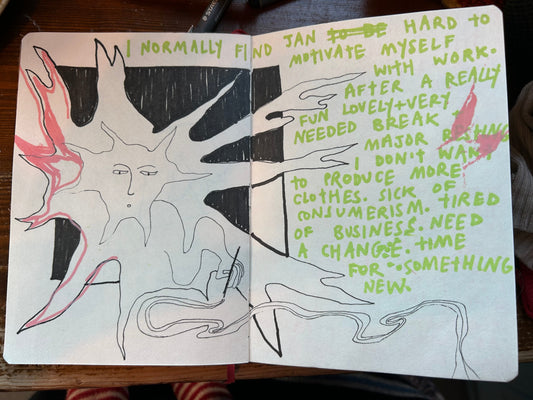 I NORMALLY FIND JAN TO BE HARD TO
MOTIVATE MYSELF
WITH WORK.
AFTER A REALLY
FUN LOVELY+VERY
NEEDED BREAK +
MAJOR
I DON'T WANT
TO PRODUCE MORE
CLOTHES. SICK OF
CONSUMERISM. TIRED
OF BUSINESS. NEED
A CHANGE. TIME
FOR SOMETHING
NEW.